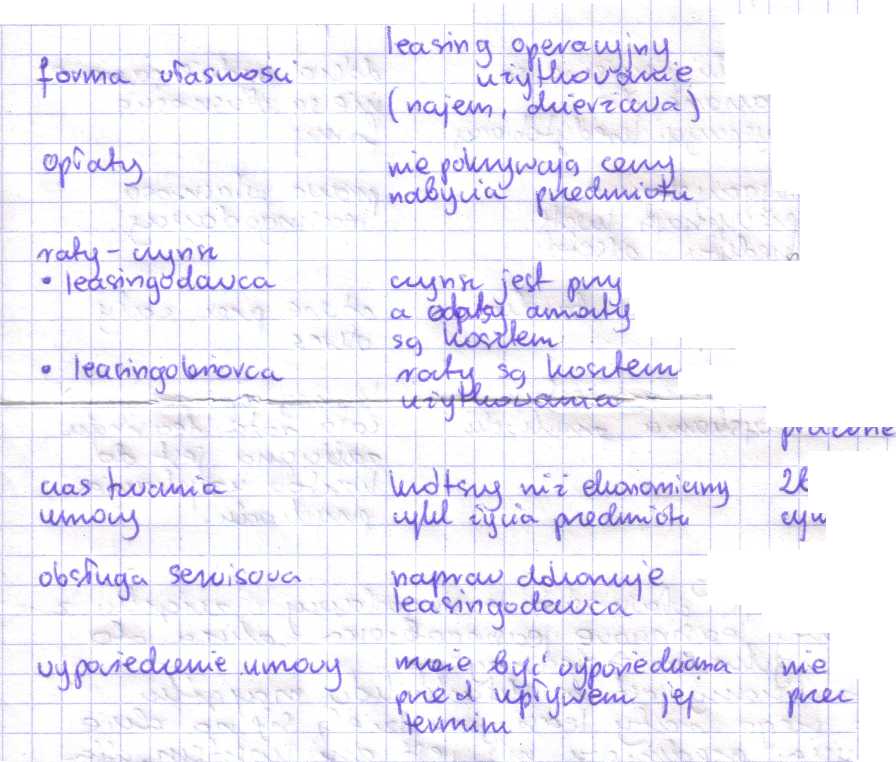 leasing operacyjny
forma własności użytkowanie
(najem, dzierżawa)
opłaty nie pokrywają ceny
nabycia przedmiotu
raty - czynsz
• leasingodawca czynsz jest przy
a odpisy amorty
są kosztem
• leasingobiorca raty są kosztem
użytkowania
czas trwania krótszy niż ekonomiczny
umowy cykl życia przedmiotu
obsługa serwisowa napraw dokonuje
leasingodawca
wypowiedzenie umowy może być wypowiedziana nie
przed upływem jej
termin